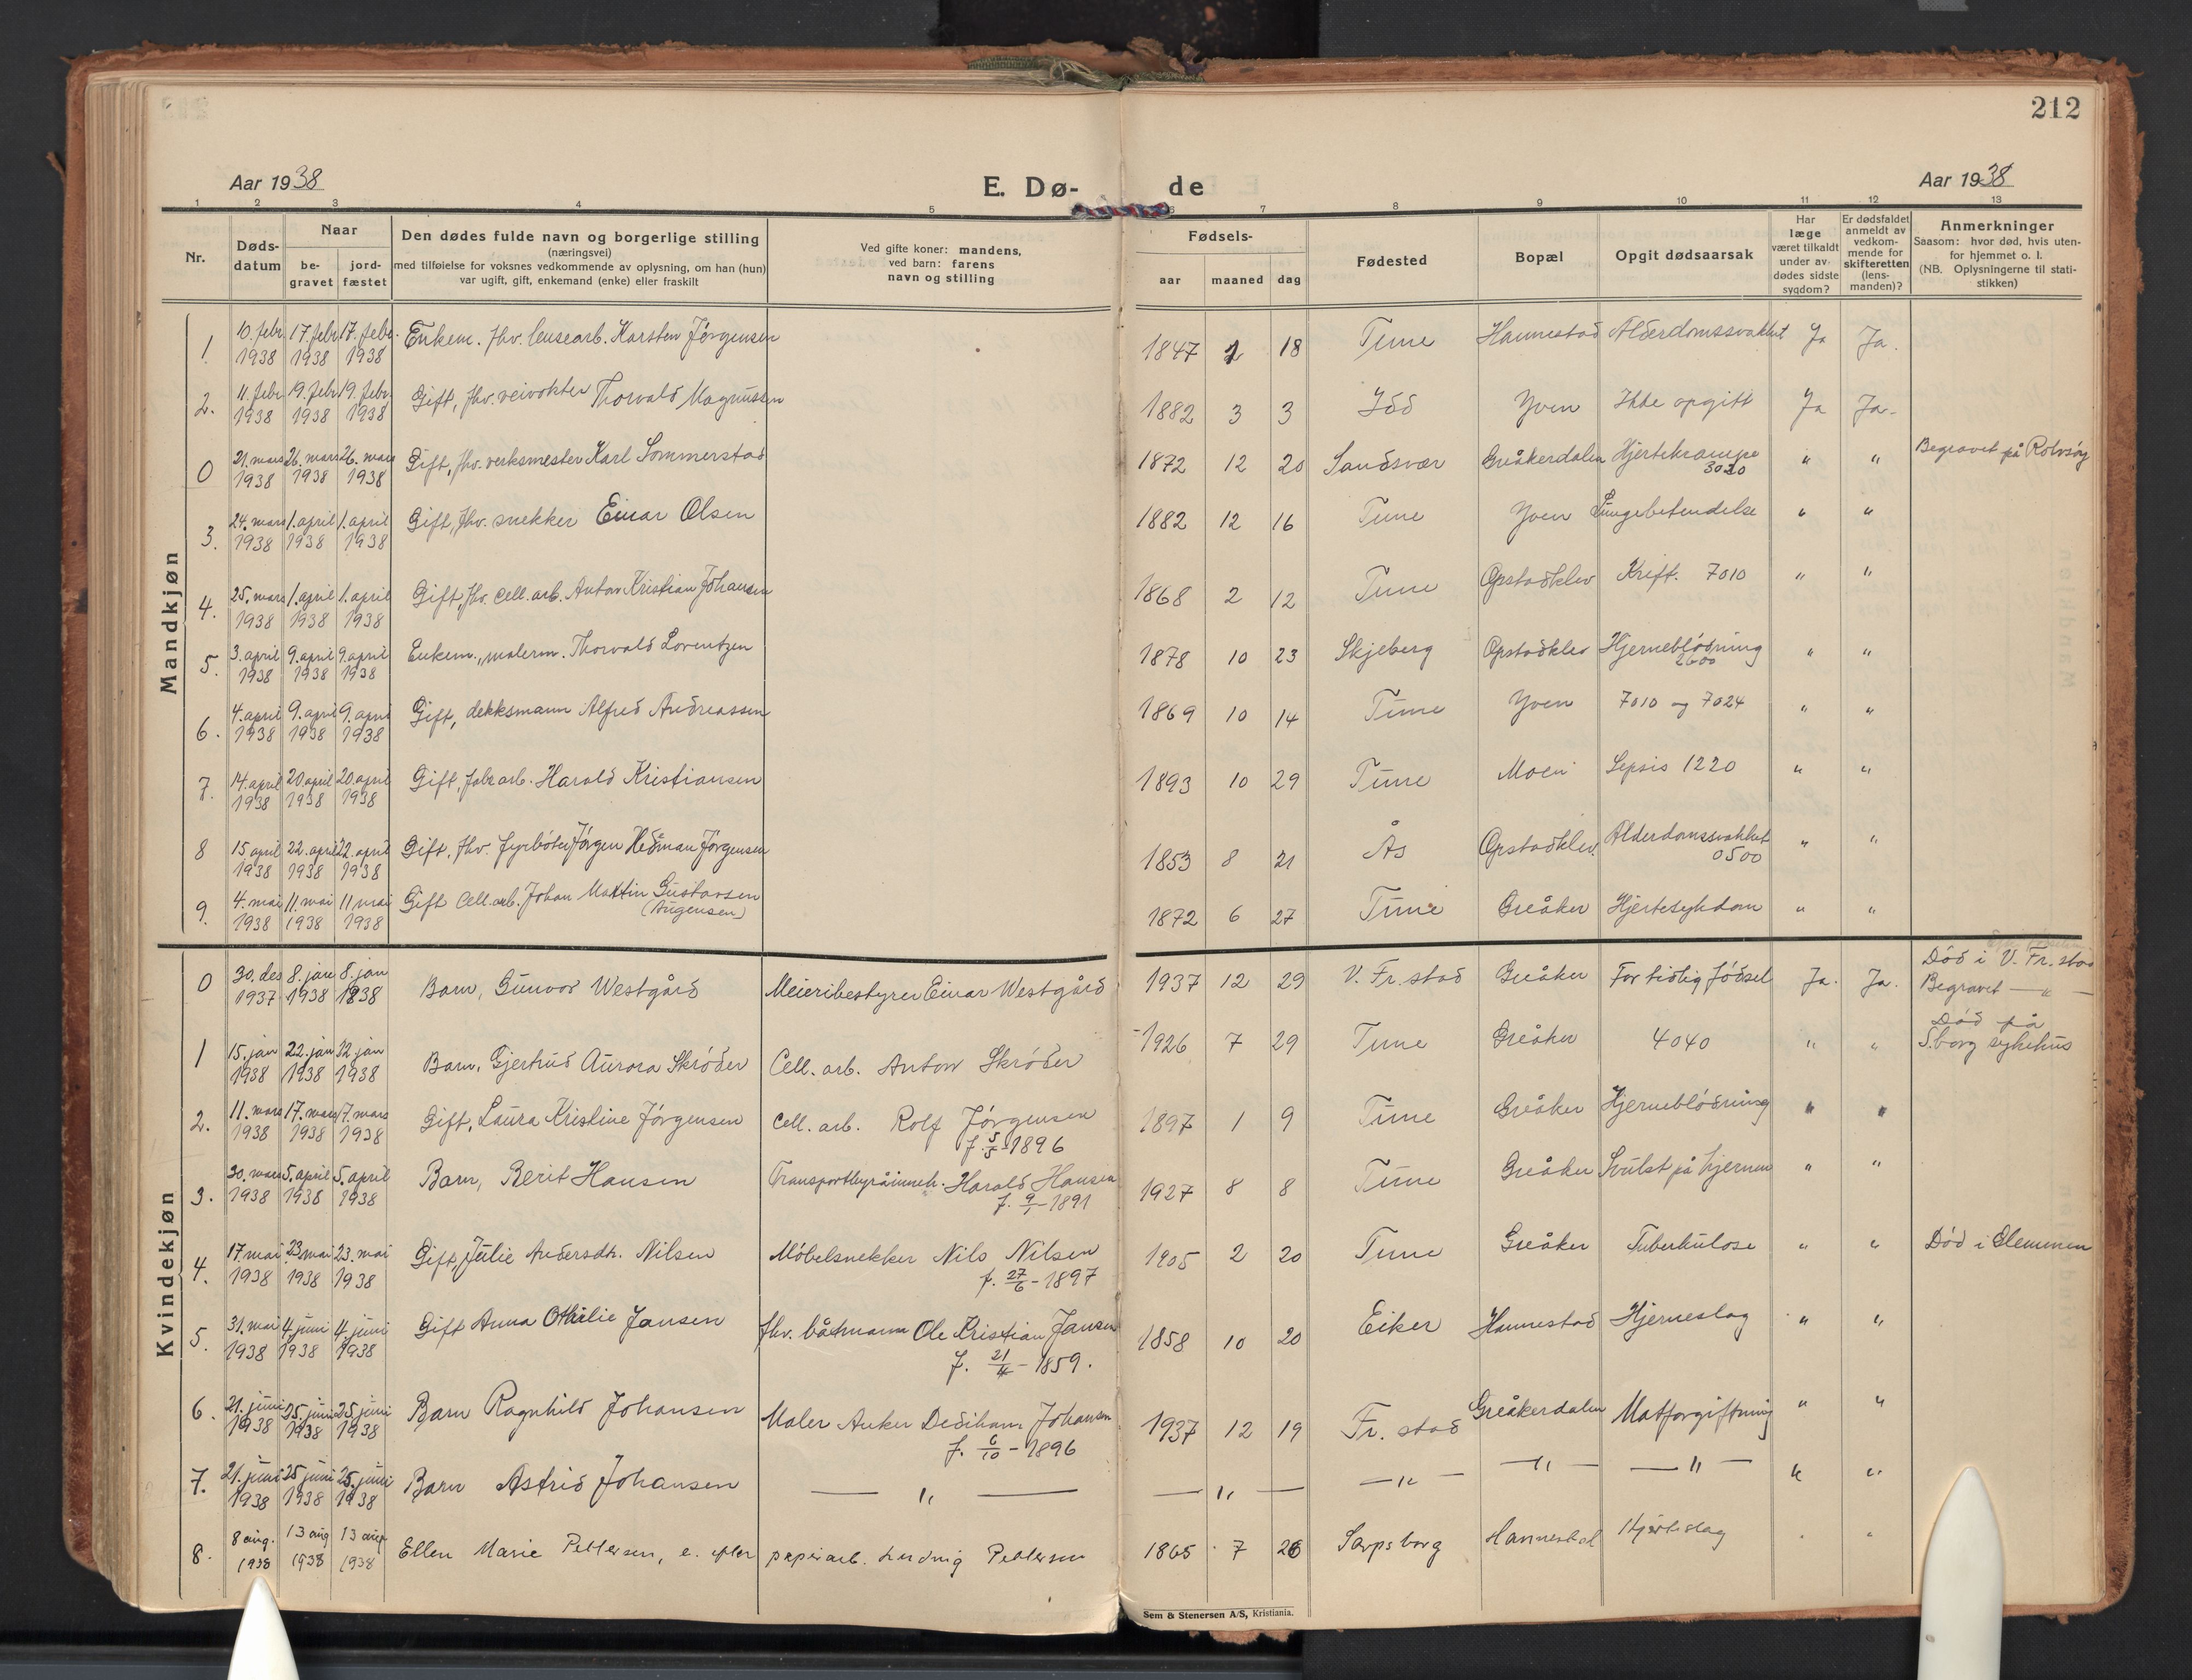 212
Aar 1938
E. Dø- de
Aar 1938
1 2 3 4 5 6 7 8 9 10 11 12 13
Nr.
Døds-
datum
Naar
be-
gravet
jord-
fæstet
Den dødes fulde navn og borgerlige stilling
(næringsvei)
med tilføielse for voksnes vedkommende av oplysning, om han (hun)
var ugift, gift, enkemand (enke) eller fraskilt
Ved gifte koner: mandens,
ved barn: farens
navn og stilling
Fødsels-
aar maaned dag
Fødested
Bopæl
Opgit dødsaarsak
Har
læge
været tilkaldt
under av-
dødes sidste
sygdom?
Er dødsfaldet
anmeldt av
vedkom-
mende for
skifteretten
(lens-
manden)?
Anmerkninger
Saasom: hvor død, hvis uten-
for hjemmet o. l.
(NB. Oplysningerne til stati-
stikken)
Mandkjøn
1. 10. febr. 1938 17. febr. 1938 17. febr. 1938 Enkem. fhv. lensearb. Karsten Jørgensen 1847 1 18 Tune Hannestad Alderdomssvakhet Ja Ja.
2. 11. febr. 1938 19. febr. 1938 19. febr. 1938 Gift, fhv. veivokter Thorvald Magnussen 1882 3 3 Idd Yven Ikke opgitt Ja Ja.
0 21. mars 1938 26. mars 1938 26. mars 1938 Gift, fhv. verksmester Karl Sommerstad 1872 12 20 Sandsvær Greåkerdalen Hjertekrampe 3020 " " Begravet på Rolvsøy
3. 24. mars 1938 1. april 1938 1. april 1938 Gift, fhv. snekker Einar Olsen 1882 12 16 Tune Yven Lungebetendelse " "
4. 25. mars 1938 1. april 1938 1. april 1938 Gift, fhv. cell. arb. Anton Kristian Johansen 1868 2 12 Tune Opstadklev Kreft. 7010 " "
5. 3. april 1938 9. april 1938 9. april 1938 Enkem., malerm. Thorvald Lorentzen 1878 10 23 Skjeberg Opstadklev Hjerneblødning 2600 " "
6. 4. april 1938 9. april 1938 9. april 1938 Gift, dekksmann Alfred Andreassen 1869 10 14 Tune Yven 7010 og 7024 " "
7. 14. april 1938 20 april 1938 20. april 1938 Gift, fabr. arb. Harald Kristiansen 1893 10 29 Tune Moen Sepsis 1220 " "
8 15. april 1938 22. april 1938 22. april 1938 Gift, fhv. fyrbøter Jørgen Hedman Jørgensen 1853 8 21 Ås Opstadklev. Alderdomssvakhet 0500 " "
9. 4. mai 1938 11. mai 1938 11 mai 1938 Gift Cell. arb. Johan Martin Gustavsen 1872 6 27 Tune Greåker Hjertesykdom " "
Kvindekjøn
0 30. des 1937 8. jan 1938 8. jan 1938 Barn, Gunvor Westgård Meieribestyrer Einar Westgård 1937 12 29 V. Fr. stad Greåker For tidlig fødsel Ja. Ja. Død i V. Fr. stad
Begravet — " —
1 15. jan 1938 22. jan 1938 22 jan 1938 Barn, Gjertrud Aurora Skrøder Cell. arb. Anton Skrøder 1926 7 29 Tune Greåker 4040 " " Død på
S.borg sykehus
2. 11. mars 1938 17. mars 1938 17. mars 1938 Gift, Laura Kristine Jørgensen Cell. arb. Rolf Jørgensen
f. 5/5 1896 1897 1 9 Tune Greåker Hjerneblødning " "
3. 30. mars 1938 5. april 1938 5. april 1938 Barn, Berit Hansen Transportbyråinneh. Harald Hansen
f. 9/1-1891 1927 8 8 Tune Greåker Svulst på hjernen " "
4. 17. mai 1938 23. mai 1938 23. mai 1938 Gift, Julie Andersdtr. Nilsen Møbelsnekker Nils Nilsen
f. 27/6-1897 1905 2 20 Tune Greåker Tuberkulose " " Død i Glemmen
5. 31. mai 1938 4. juni 1938 4. juni 1938 Gift Anna Othilie Jansen fhv. båtmann Ole Kristian Jansen
f. 21/4-1859. 1858 10 20 Eiker Hannestad Hjerneslag " "
6. 21. juni 1938 25. juni 1938 25. juni 1938 Barn Ragnhild Johansen Maler Anker Johansen
f. 6/10-1896 1937 12 19 Fr. stad Greåkerdalen Matforgiftning " "
7. 21. juni 1938 25 juni 1938 25. juni 1938 Barn Astrid Johansen — " — — " — — " — — " — — " — " "
8. 8 aug. 1938 13 aug 1938 13 aug 1938 Ellen Marie Pettersen, e. efter papirarb. Ludvig Pettersen 1865 7 26 Sarpsborg Hannestad Hjerteslag " "
Sem & Stenersen A/S, Kristiania.